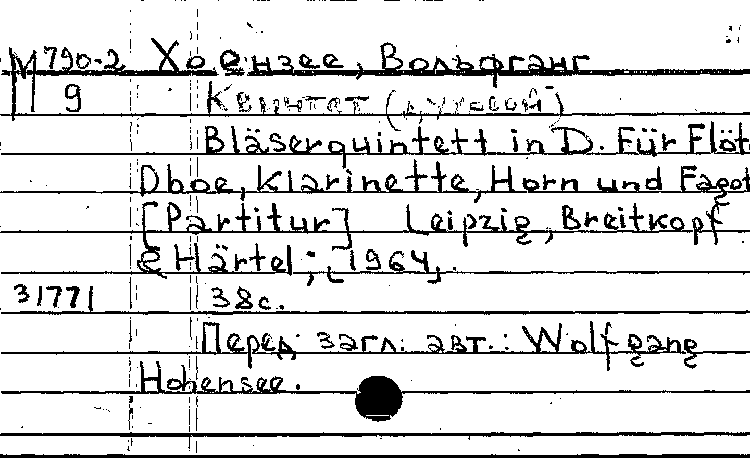 М 790-2 Хоензее, Вольфганг
9 Квинтет (духовой)
Bläserquintett in D. Für Flöt
Oboe, Klarinette, Horn und Fagot
[Partitur] Leipzig, Breitkopf
& Härtel; [1964].
31771 38с.
Перед загл. авт.: Wolfgang
Hohensee.